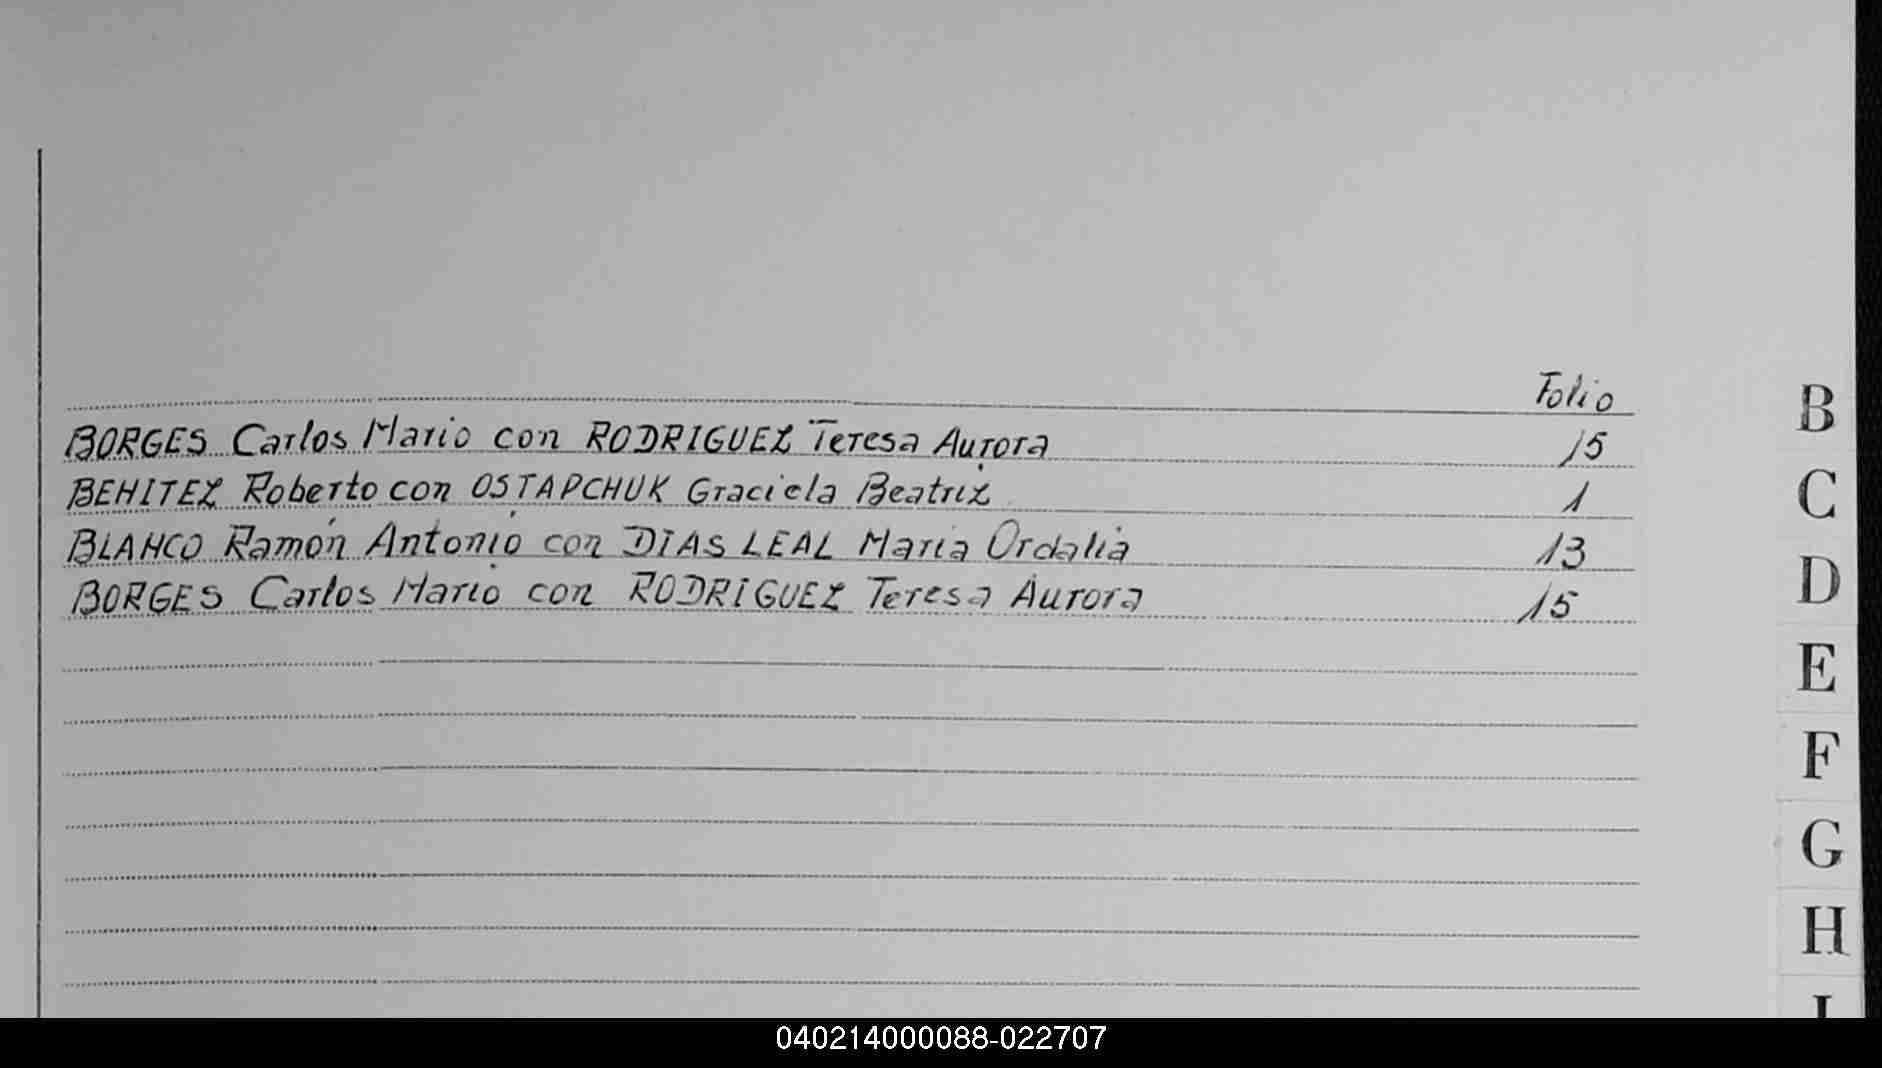 Folio
BORGES Carlos Mario con RODRIGUEZ Teresa Aurora 15
BENITEZ Roberto con OSTAPCHUK Graciela Beatriz 1
BLANCO Ramón Antonio con DIAS LEAL Maria Ordalia 13
BORGES Carlos Mario con RODRIGUEZ Teresa Aurora 15
B
C
D
E
F
G
H
I
040214000088-022707